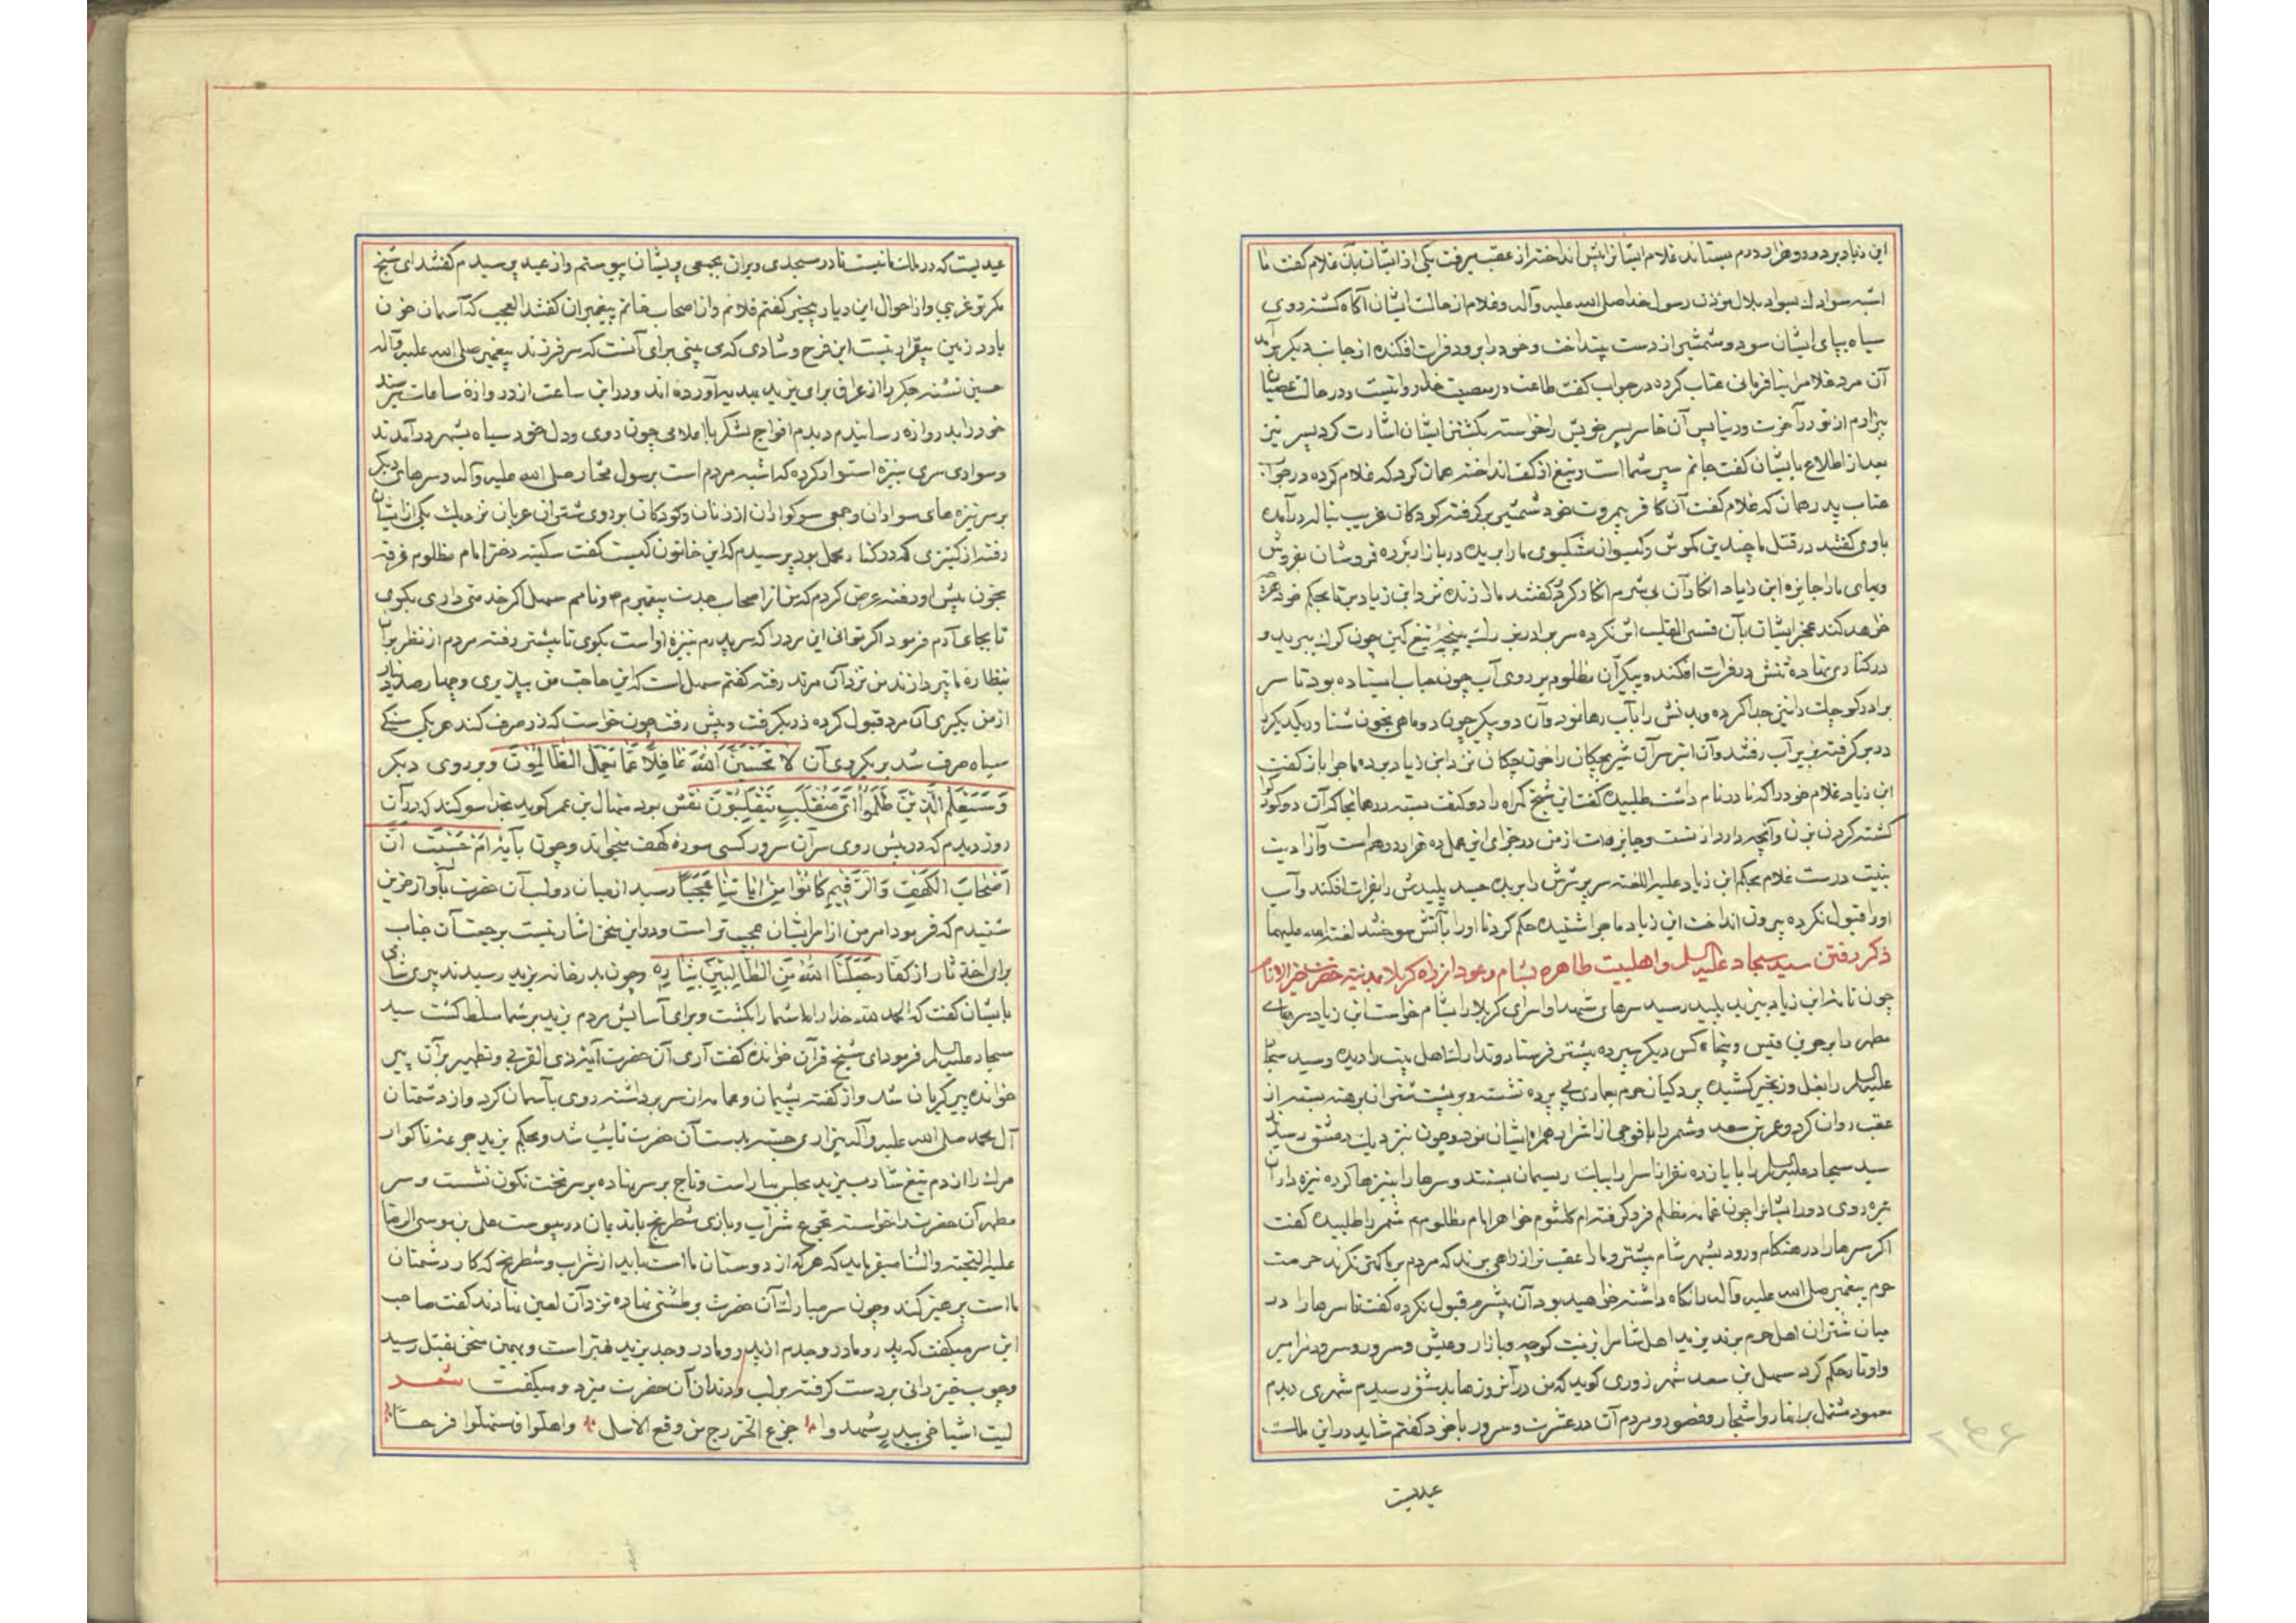 ابن زیاد برد و دو هزار درم بستاند غلام ایشانرا پیش انداخته از عقب میرفت یکی از ایشان بآن غلام گفت ما
اشبه سوادك بسواد بلال مؤذن رسول خدا صلی الله علیه وآله وغلام از حالت ایشان آگاه گشته روی
سیاه بپای ایشان سود و شمشیر از دست بینداخت وخود را برود فرات افکنده از جانب دیگر برآمد
آن مرد غلام را بنافرمانی عتاب کرده در جواب گفت طاعت در معصیت خدا روا نیست ودر حالت عصیان
بیزارم از تو در آخرت ودنیا پس آن خاسر پسر خویش را خواسته بکشتن ایشان اشارت کرد پسر نیز
بعد از اطلاع بایشان گفت جانم سپر شما است وتیغ از کف انداخته همان کرد که غلام کرده در جواب
عتاب پدر همان که غلام گفت آن کافر بیمروت خود شمشیر برگرفته کودکان غریب بناله درآمده
باوی گفتند در قتل ما چندین مکوش وگیسوان مشکبوی ما را بریده در بازار برده فروشان بفروش
وبهای ما را جایزه ابن زیاد انکار آن بیشرم انکار کرد گفتند ما را زنده نزد ابن زیاد بر تا بحکم خود هرچه
خواهد کند عجز ایشان بآن قسی القلب اثر نکرده سر برادر بزرگ را به تیغ کین چون گوی ببرید و
در کنار نهاده تنش در فرات افکند وپیکر آن مظلوم بر روی آب چون حباب ایستاده بود تا سر
برادر کوچك را نیز جدا کرده وبدنش را بآب رها نمود وآن دو پیکر چون دو ماهی بخون شنا ور یکدیگر را
در بر گرفته بزیر آب رفتند وآن ابتر سر آن شیر بچگان را خون چکان نزد ابن زیاد برده ماجرا باز گفت
ابن زیاد غلام خود را که نادر نام داشت طلبیده گفت این شیخ گمراه را دو کتف بسته در همانجا که آن دو کودک را
کشته گردن بزن وآنچه دارد از تست وجایزه‌ات از من در جزای این عمل ده هزار درهم است وآزادیت
بنیت درست غلام بحکم ابن زیاد علیه اللعنه سر پر شرش را بریده جسد پلیدش را بفرات افکند وآب
او را قبول نکرده بیرون انداخت ابن زیاد ماجرا شنیده حکم کرد تا او را بآتش سوختند لعنة الله علیهما
ذکر رفتن سید سجاد علیه السلام واهلبیت طاهره بشام وعود از راه کربلا بمدینه حضرت خیر الانام
چون نامه ابن زیاد بیزید پلید رسید سرهای شهدا واسرای کربلا را بشام خواست ابن زیاد سرهای
مطهر را بزحر بن قیس وپنجاه کس دیگر سپرده پیشتر فرستاد وتدارك اهل بیت را دیده وسید سجاد
علیه السلام را بغل وزنجیر کشیده پردگیان حرم بعماری بی پرده نشسته وبر پشت شتران برهنه بسته از
عقب روان کرد وعمر بن سعد وشمر را با فوجی از اشرار همراه ایشان نمود وچون بنزدیك دمشق رسیدند
سید سجاد علیه السلام را با یازده نفر از اسرا بیك ریسمان بستند وسرها را بنیزها کرده نیزه داران
تیره روی دور ایشانرا چون غمامه مظلم فرو گرفتند ام کلثوم خواهر امام مظلوم هم شمر را طلبیده گفت
اگر سرها را در هنگام ورود بشهر شام پیشتر وما را عقب تر از راهی برند که مردم بر ما کمتر نگرند حرمت
حرم پیغمبر صلی الله علیه وآله را نگاه داشته خواهید بود آن بیشرم قبول نکرده گفت تا سرها را در
میان شتران اهل حرم برند یزید اهل شام را بزینت کوچه وبازار وعیش وسرور وسرود مزامیر
واوتار حکم کرد سهل بن سعد شهرزوری گوید که من در آنروزها بدمشق رسیدم شهری دیدم
معمور مشتمل بر انهار واشجار وقصور ومردم آن در عشرت وسرور با خود گفتم شاید در این ملك
عیدیست
عیدیست که در ملك ما نیست تا در مسجدی ویران بجمعی پریشان پیوستم واز عید پرسیدم گفتند ای شیخ
مگر تو غریبی واز احوال این دیار بیخبر گفتم فلانم واز اصحاب خاتم پیغمبران گفتند العجب که آسمان خون
بارد زمین بیقرار نیست این فرح وشادی که می بینی برای آنست که سر فرزند پیغمبر صلی الله علیه وآله
حسین تشنه جگر را از عراق برای یزید بهدیه آورده اند ودر این ساعت از دروازه ساعات میرسند
خود را بدروازه رسانیدم دیدم افواج لشکر با اعلامی چون روی ودل خود سیاه بشهر درآمدند
وسواری سری بنیزه استوار کرده که اشبه مردم است برسول مختار صلی الله علیه وآله وسرهای دیگر
بر سر نیزه های سواران وجمعی سوکواران از زنان وکودکان بر روی شتران عریان نزدیك یکی از ایشان
رفته از کنیزی که در کنار محمل بود پرسیدم که این خاتون کیست گفت سکینه دختر امام مظلوم غرقه
بخون پیش او رفته عرض کردم که من از اصحاب جدت پیغمبرم ونامم سهل اگر خدمتی داری بگوی
تا بجای آرم فرمود اگر توانی این مرد را که سر پدرم بنیزه او است بگوی تا پیشتر رفته مردم از نظر بر آن
بنظاره ما نپردازند من نزد آن مرتد رفته گفتم سهل است که این حاجت من بپذیری وچهار صد دینار
از من بگیری آن مرد قبول کرده زر بگرفت وپیش رفت چون خواست که زر صرف کند هر یکی سنگی
سیاه صرف شد بر یکروی آن لَا تَحْسَبَنَّ اللّٰهَ غَافِلًا عَمَّا یَعْمَلُ الظَّالِمُونَ وبر روی دیگر
وَسَیَعْلَمُ الَّذِینَ ظَلَمُوا اَیَّ مُنْقَلَبٍ یَنْقَلِبُونَ نقش بود منهال بن عمر گوید بخدا سوگند که در آن
روز دیدم که در پیش روی سر آن سرور کسی سوره کهف میخواند وچون بآیه اَمْ حَسِبْتَ اَنَّ
اَصْحَابَ الْکَهْفِ وَالرَّقِیمِ کَانُوا مِنْ اٰیَاتِنَا عَجَبًا رسید از میان دو لب آن حضرت بآواز حزین
شنیدم که فرمود امر من از امر ایشان عجیب تر است ودر این سخن اشارتیست برجعت آن جناب
برای اخذ ثار از کفار جَعَلَنَا اللّٰهُ مِنَ الطَّالِبِینَ بِثَارِهِ وچون بدر خانه یزید رسیدند پیری شامی
بایشان گفت که الحمد لله خدا را که شما را بکشت وبرای آسایش مردم یزید بر شما مسلط گشت سید
سجاد علیه السلام فرمود ای شیخ قرآن خوانده گفت آری آن حضرت آیه ذی القربی وتطهیر بر آن پیر
خوانده پیر گریان شد واز گفته پشیمان وعمامه از سر برداشته روی بآسمان کرد واز دشمنان
آل محمد صلی الله علیه وآله بیزاری جسته بدست آن حضرت تایب شد وبحکم یزید جرعه ناگوار
مرك را از دم تیغ شاد یزید مجلس بیاراست وتاج بر سر نهاده بر سر تخت نگون نشست وسر
مطهر آن حضرت را خواسته بتجرع شراب وبازی شطرنج با ندیمان در پیوست علی بن موسی الرضا
علیه التحیة والثنا میفرماید که هر که از دوستان ما است باید از شراب وشطرنج که کار دشمنان
ما است پرهیز کند وچون سر مبارك آن حضرت بر طشتی نهاده نزد آن لعین نهادند گفت صاحب
این سر میگفت که پدر ومادر وجدم از پدر ومادر وجد یزید بهتر است وبهمین سخن بقتل رسید
وچوب خیزرانی بر دست گرفته بر لب ودندان آن حضرت میزد ومیگفت شعر
لیت اشیاخی ببدر شهدوا جزع الخزرج من وقع الاسل واهلّوا فاستهلّوا فرحًا